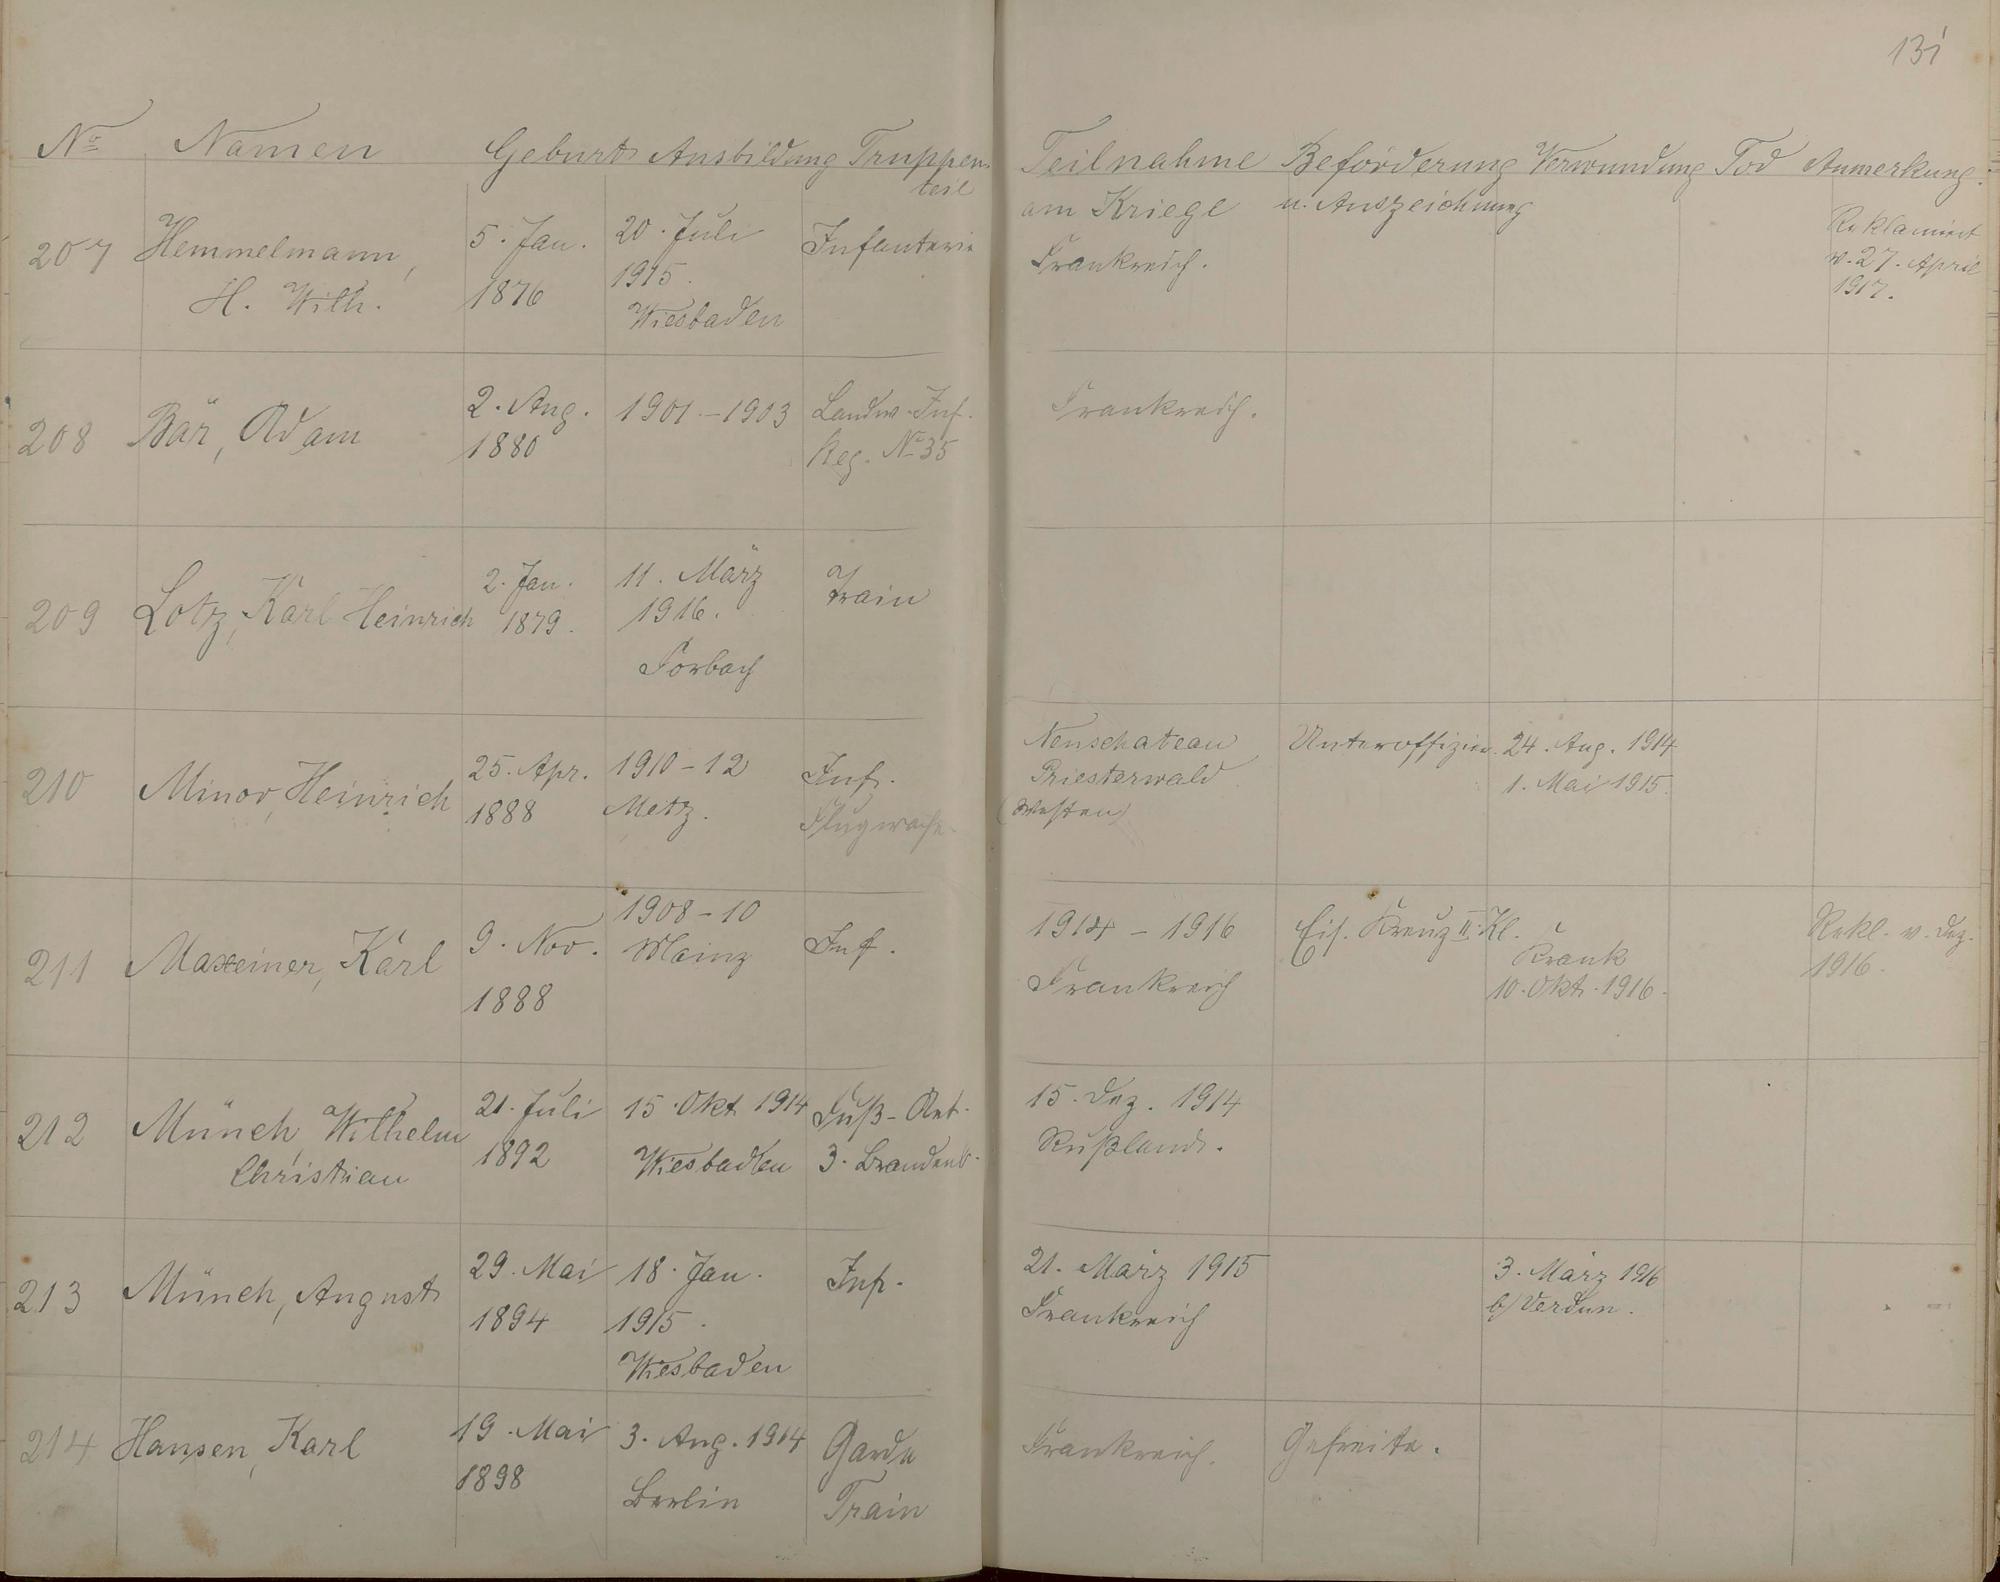 131
No Namen Geburt Ausbildung Truppen-
teil
Teilnahme Beförderung Verwundung Tod Anmerkung.
am Kriege u. Auszeichnung
207 Hemmelmann,
H. Wilh.
5. Jan.
1876
20. Juli
1915.
Wiesbaden
Infanterie
Frankreich.
Reklamiert
v. 27. April
1917.
208 Bär, Adam
2. Aug.
1880
1901-1903
Landw. Inf.
Reg. No 35
Frankreich.
209 Lotz, Karl Heinrich
2. Jan.
1879.
11. März
1916.
Forbach
Train
210 Minor, Heinrich
25. Apr.
1888
1910-12
Metz.
Inf.
Flugwache.
Neuschateau
Priesterwald
(Westen)
Unteroffizier.
24. Aug. 1914
1. Mai 1915.
211 Maxeiner, Karl
9. Nov.
1888
1908-10
Mainz
Inf.
1914 - 1916
Frankreich
Eis. Kreuz II. Kl.
Krank
10. Okt. 1916.
Rekl. v. Dez.
1916.
212 Münch, Wilhelm
Christian
21. Juli
1892
15. Okt 1914
Wiesbaden
Fuß-Art.
3. Brandenb.
15. Dez. 1914
Rußland.
213 Münch, August
29. Mai
1894
18. Jan.
1915.
Wiesbaden
Inf.
21. März 1915
Frankreich
3. März 1916
b/ Verdun.
214 Hansen, Karl
19. Mai
1898
3. Aug. 1914
Berlin
Garde
Train
Frankreich.
Gefreite.